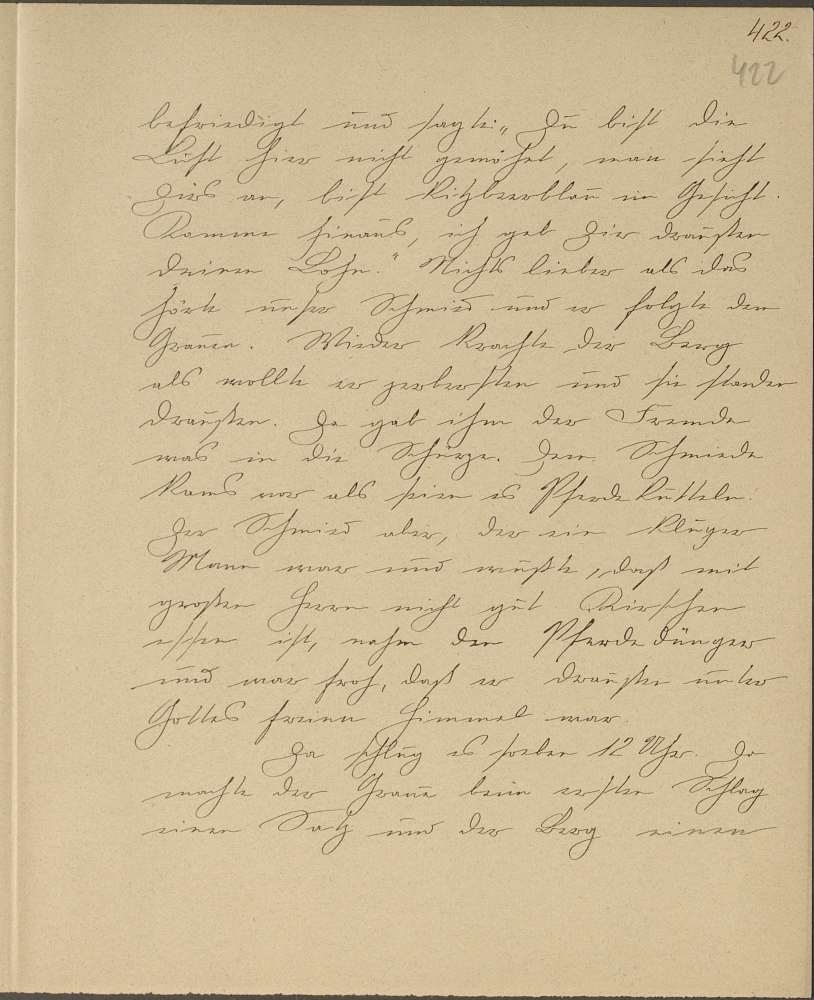 422.
422
befriedigt und sagte: „Du bist die
Luft hier nicht gewöhnt, man sieht
Dirs an, bist kitzbeerblau im Gesicht.
Komme hinaus, ich geb Dir draußen
deinen Lohn." Nichts lieber als das
hörte unser Schmied und er folgte dem
Grauen. Wieder krachte der Berg
als wollte er zerbersten und sie standen
draußen. Da gab ihm der Fremde
was in die Schürze. Dem Schmiede
kams vor als seien es Pferdekutteln.
Der Schmied aber, der ein kluger
Mann war und wußte, daß mit
großen Herrn nicht gut Kirschen
essen ist, nahm den Pferdedünger
und war froh, daß er draußen unter
Gottes freien Himmel war.
Da schlug es soeben 12 Uhr. Da
machte der Graue beim ersten Schlag
einen Satz und der Berg einen